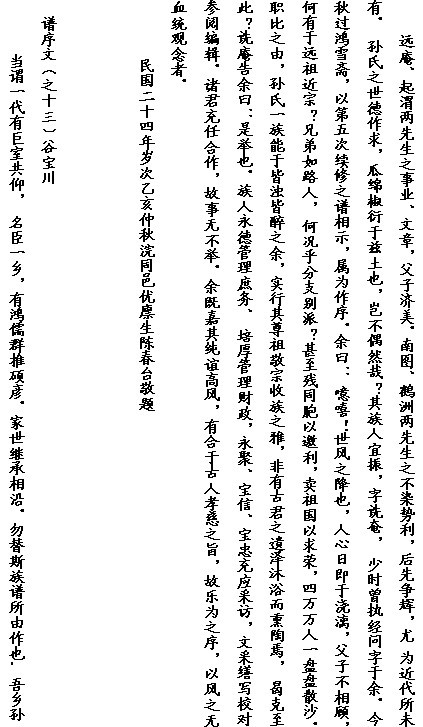 远庵、起渭两先生之事业、文章，父子济美。南图、鹤洲两先生之不染势利，后先争辉，尤为近代所未
有。孙氏之世德作求，瓜绵椒衍于兹土也，岂不偶然哉？其族人宜振，字诜庵，少时曾执经问字于余。今
秋过鸿雪斋，以第五次续修之谱相示，属为作序。余曰：噫嘻！世风之降也，人心日即于浇漓，父子不相顾，
何有于远祖近宗？兄弟如路人，何况乎分支别派？甚至残同胞以邀利，卖祖国以求荣，四万万人一盘盘散沙。
职比之由，孙氏一族能于皆浊皆醉之余，实行其尊祖敬宗收族之雅，非有古君之遗泽沐浴而熏陶焉，曷克至
此？诜庵告余曰：是举也。族人永德管理庶务、培厚管理财政，永聚、宝信、宝忠充应采访，文采缮写校对
参阅编辑。诸君充任合作，故事无不举。余既嘉其纯谊高风，有合于古人孝慈之旨，故乐为之序，以风之无
血统观念者。
民国二十四年岁次乙亥仲秋浣同邑优廪生陈春台敬题
谱序文（之十三）谷宝川
当谓一代有巨室共仰，名臣一乡，有鸿儒群推硕彦。家世继承相沿。勿替斯族谱所由作也，吾乡孙